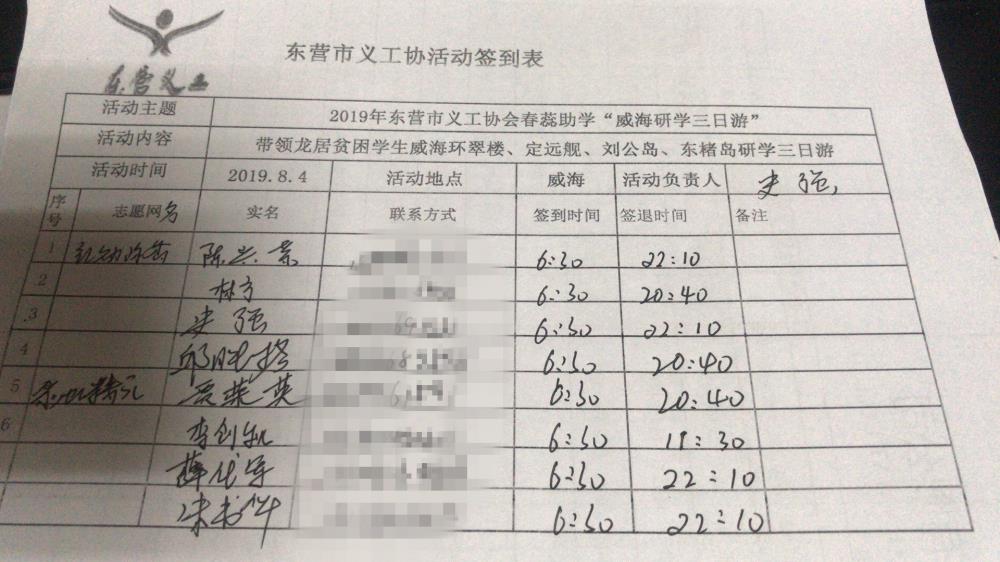 东营义工
东营市义工协活动签到表
活动主题 2019年东营市义工协会春蕊助学“威海研学三日游”
活动内容 带领龙居贫困学生威海环翠楼、定远舰、刘公岛、东楮岛研学三日游
活动时间 2019.8.4 活动地点 威海 活动负责人 史强
序号 志愿网名 实名 联系方式 签到时间 签退时间 备注
1 陈兰景 6:30 22:10
2 林方 6:30 20:40
3 史强 6:30 22:10
4 6:30 20:40
5 英 6:30 20:40
6 李创凯 6:30 18:30
薛代军 6:30 22:10
6:30 22:10